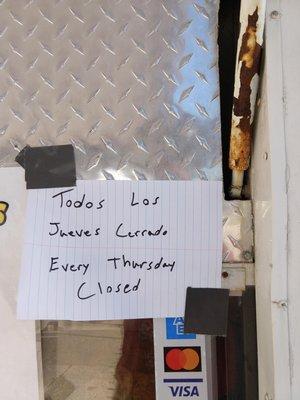 Todos Los
Jueves Cerrado
Every Thursday
Closed
VISA